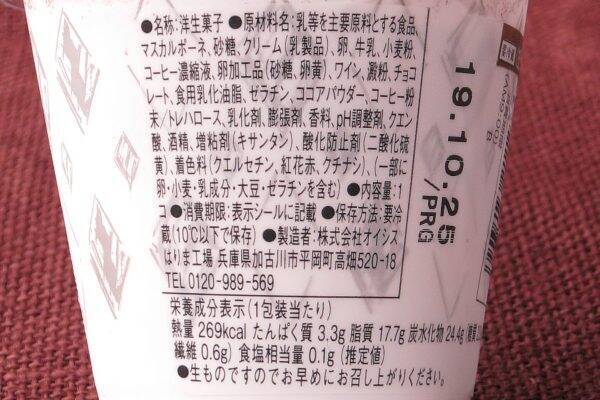 ●名称:洋生菓子 ●原材料名:乳等を主要原料とする食品、
マスカルポーネ、砂糖、クリーム(乳製品)、卵、牛乳、小麦粉、
コーヒー濃縮液、卵加工品(砂糖、卵黄)、ワイン、澱粉、チョコ
レート、食用乳化油脂、ゼラチン、ココアパウダー、コーヒー粉
末/トレハロース、乳化剤、膨張剤、香料、pH調整剤、クエン
酸、酒精、増粘剤(キサンタン)、酸化防止剤(二酸化硫
黄)、着色料(クエルセチン、紅花赤、クチナシ)、(一部に
卵・小麦・乳成分・大豆・ゼラチンを含む) ●内容量:1
コ ●消費期限:表示シールに記載 ●保存方法:要冷
蔵(10℃以下で保存) ●製造者:株式会社オイシス
はりま工場 兵庫県加古川市平岡町高畑520-18
TEL 0120-989-569
栄養成分表示(1包装当たり)
熱量 269kcal たんぱく質 3.3g 脂質 17.7g 炭水化物 24.4g (糖質
繊維 0.6g) 食塩相当量 0.1g (推定値)
●生ものですのでお早めにお召し上がりください。
19.10.25
/PRG